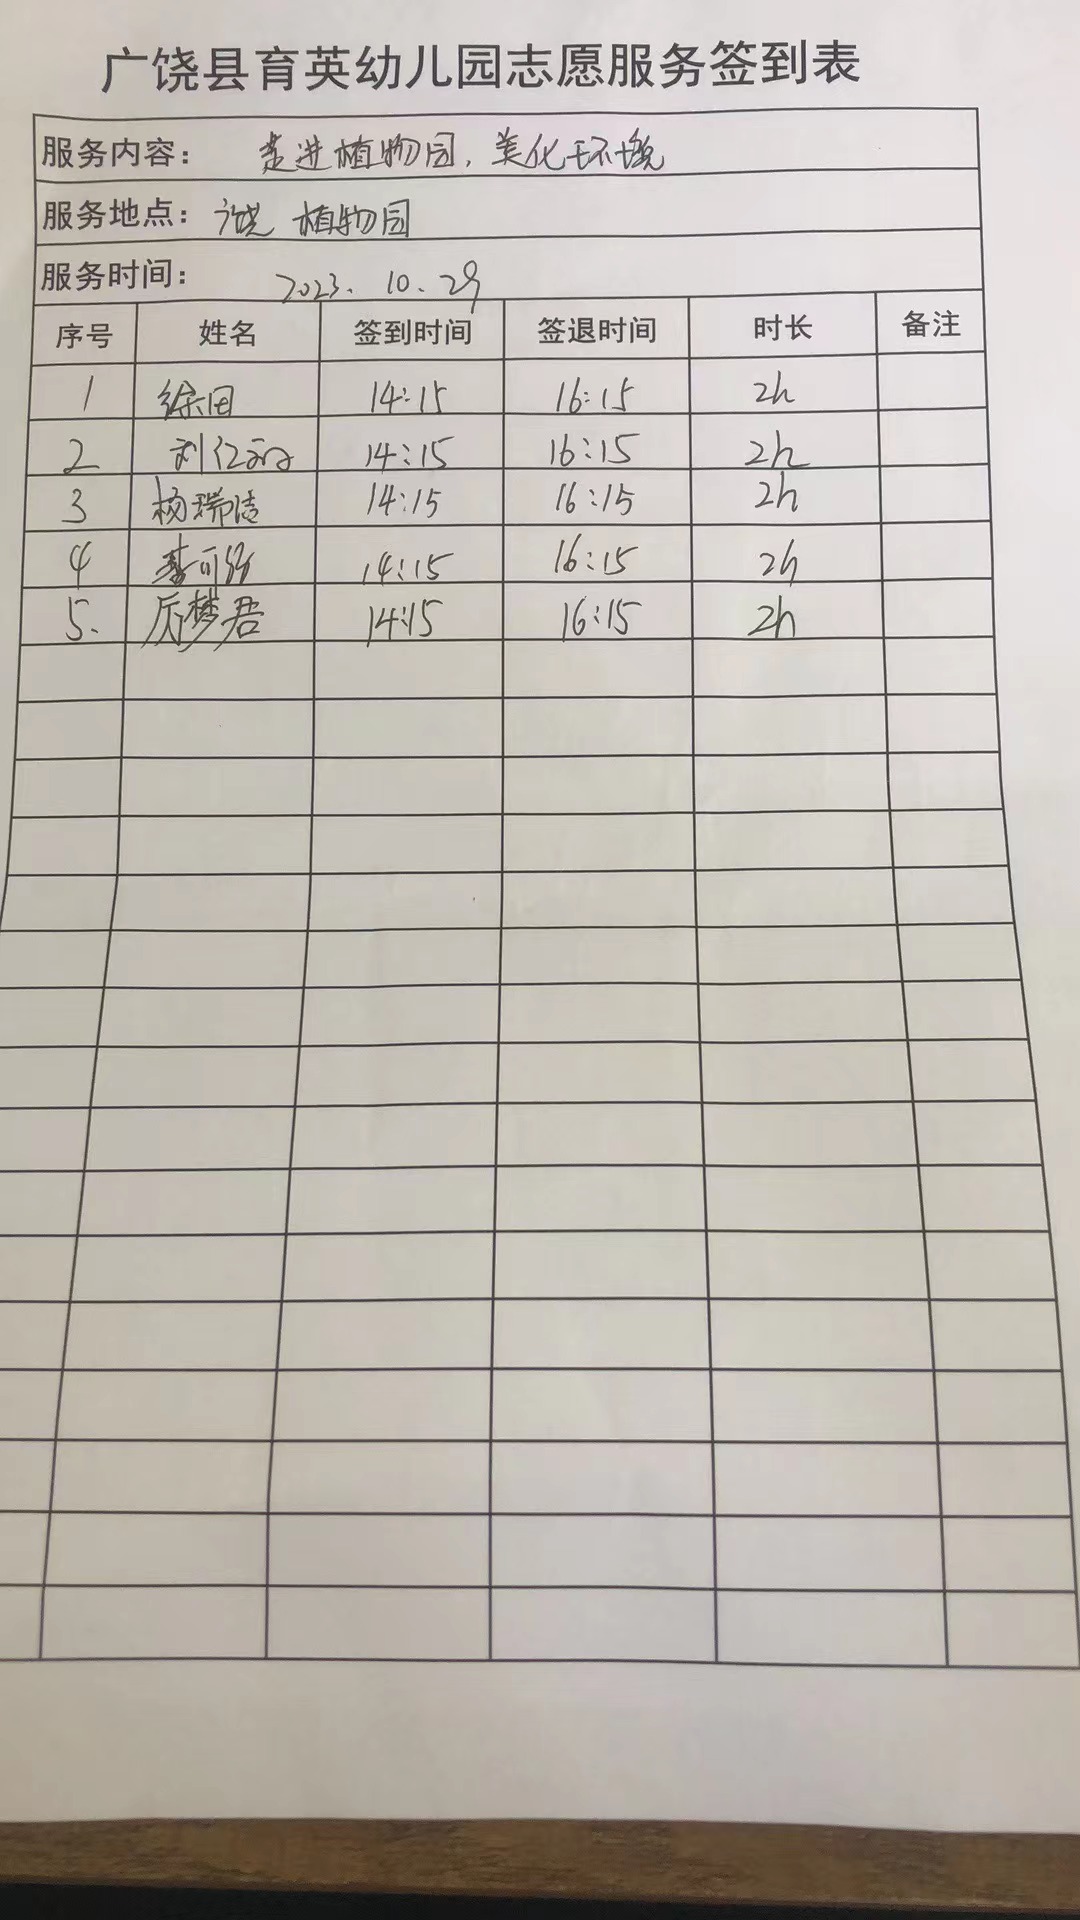 广饶县育英幼儿园志愿服务签到表
服务内容： 走进植物园，美化环境
服务地点： 广饶 植物园
服务时间： 2023. 10. 29
序号 姓名 签到时间 签退时间 时长 备注
1 徐田 14:15 16:15 2h
2 刘 14:15 16:15 2h
3 杨瑞洁 14:15 16:15 2h
4 李可 14:15 16:15 2h
5. 梦君 14:15 16:15 2h